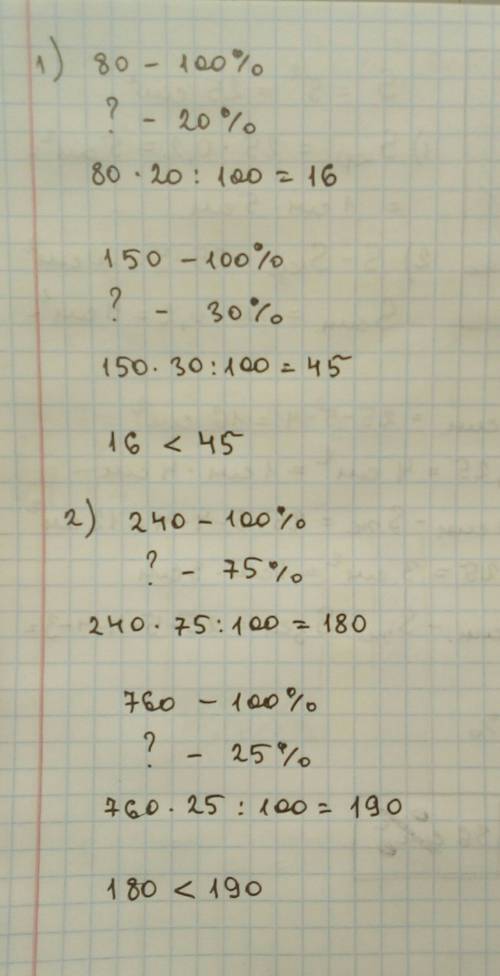 1) 80 - 100%
? - 20%
80 · 20 : 100 = 16
150 - 100%
? - 30%
150 · 30 : 100 = 45
16 < 45
2) 240 - 100%
? - 75%
240 · 75 : 100 = 180
760 - 100%
? - 25%
760 · 25 : 100 = 190
180 < 190